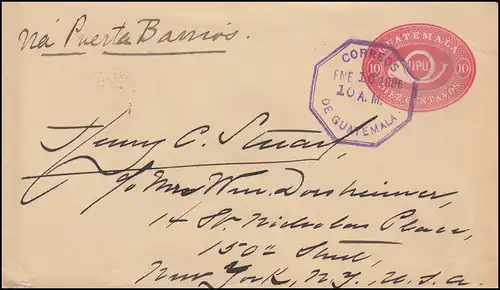 Via Puerto Barrios.
GUATEMALA
10 UPU 10
DIEZ CENTAVOS
CORREOS
ENE 10 1896
10 A.M.
DE GUATEMALA.
Henry C. Stuart,
c/o Mrs Wm. Dorsheimer,
14 St. Nicholas Place,
150th Street,
New York, N.Y., U.S.A.